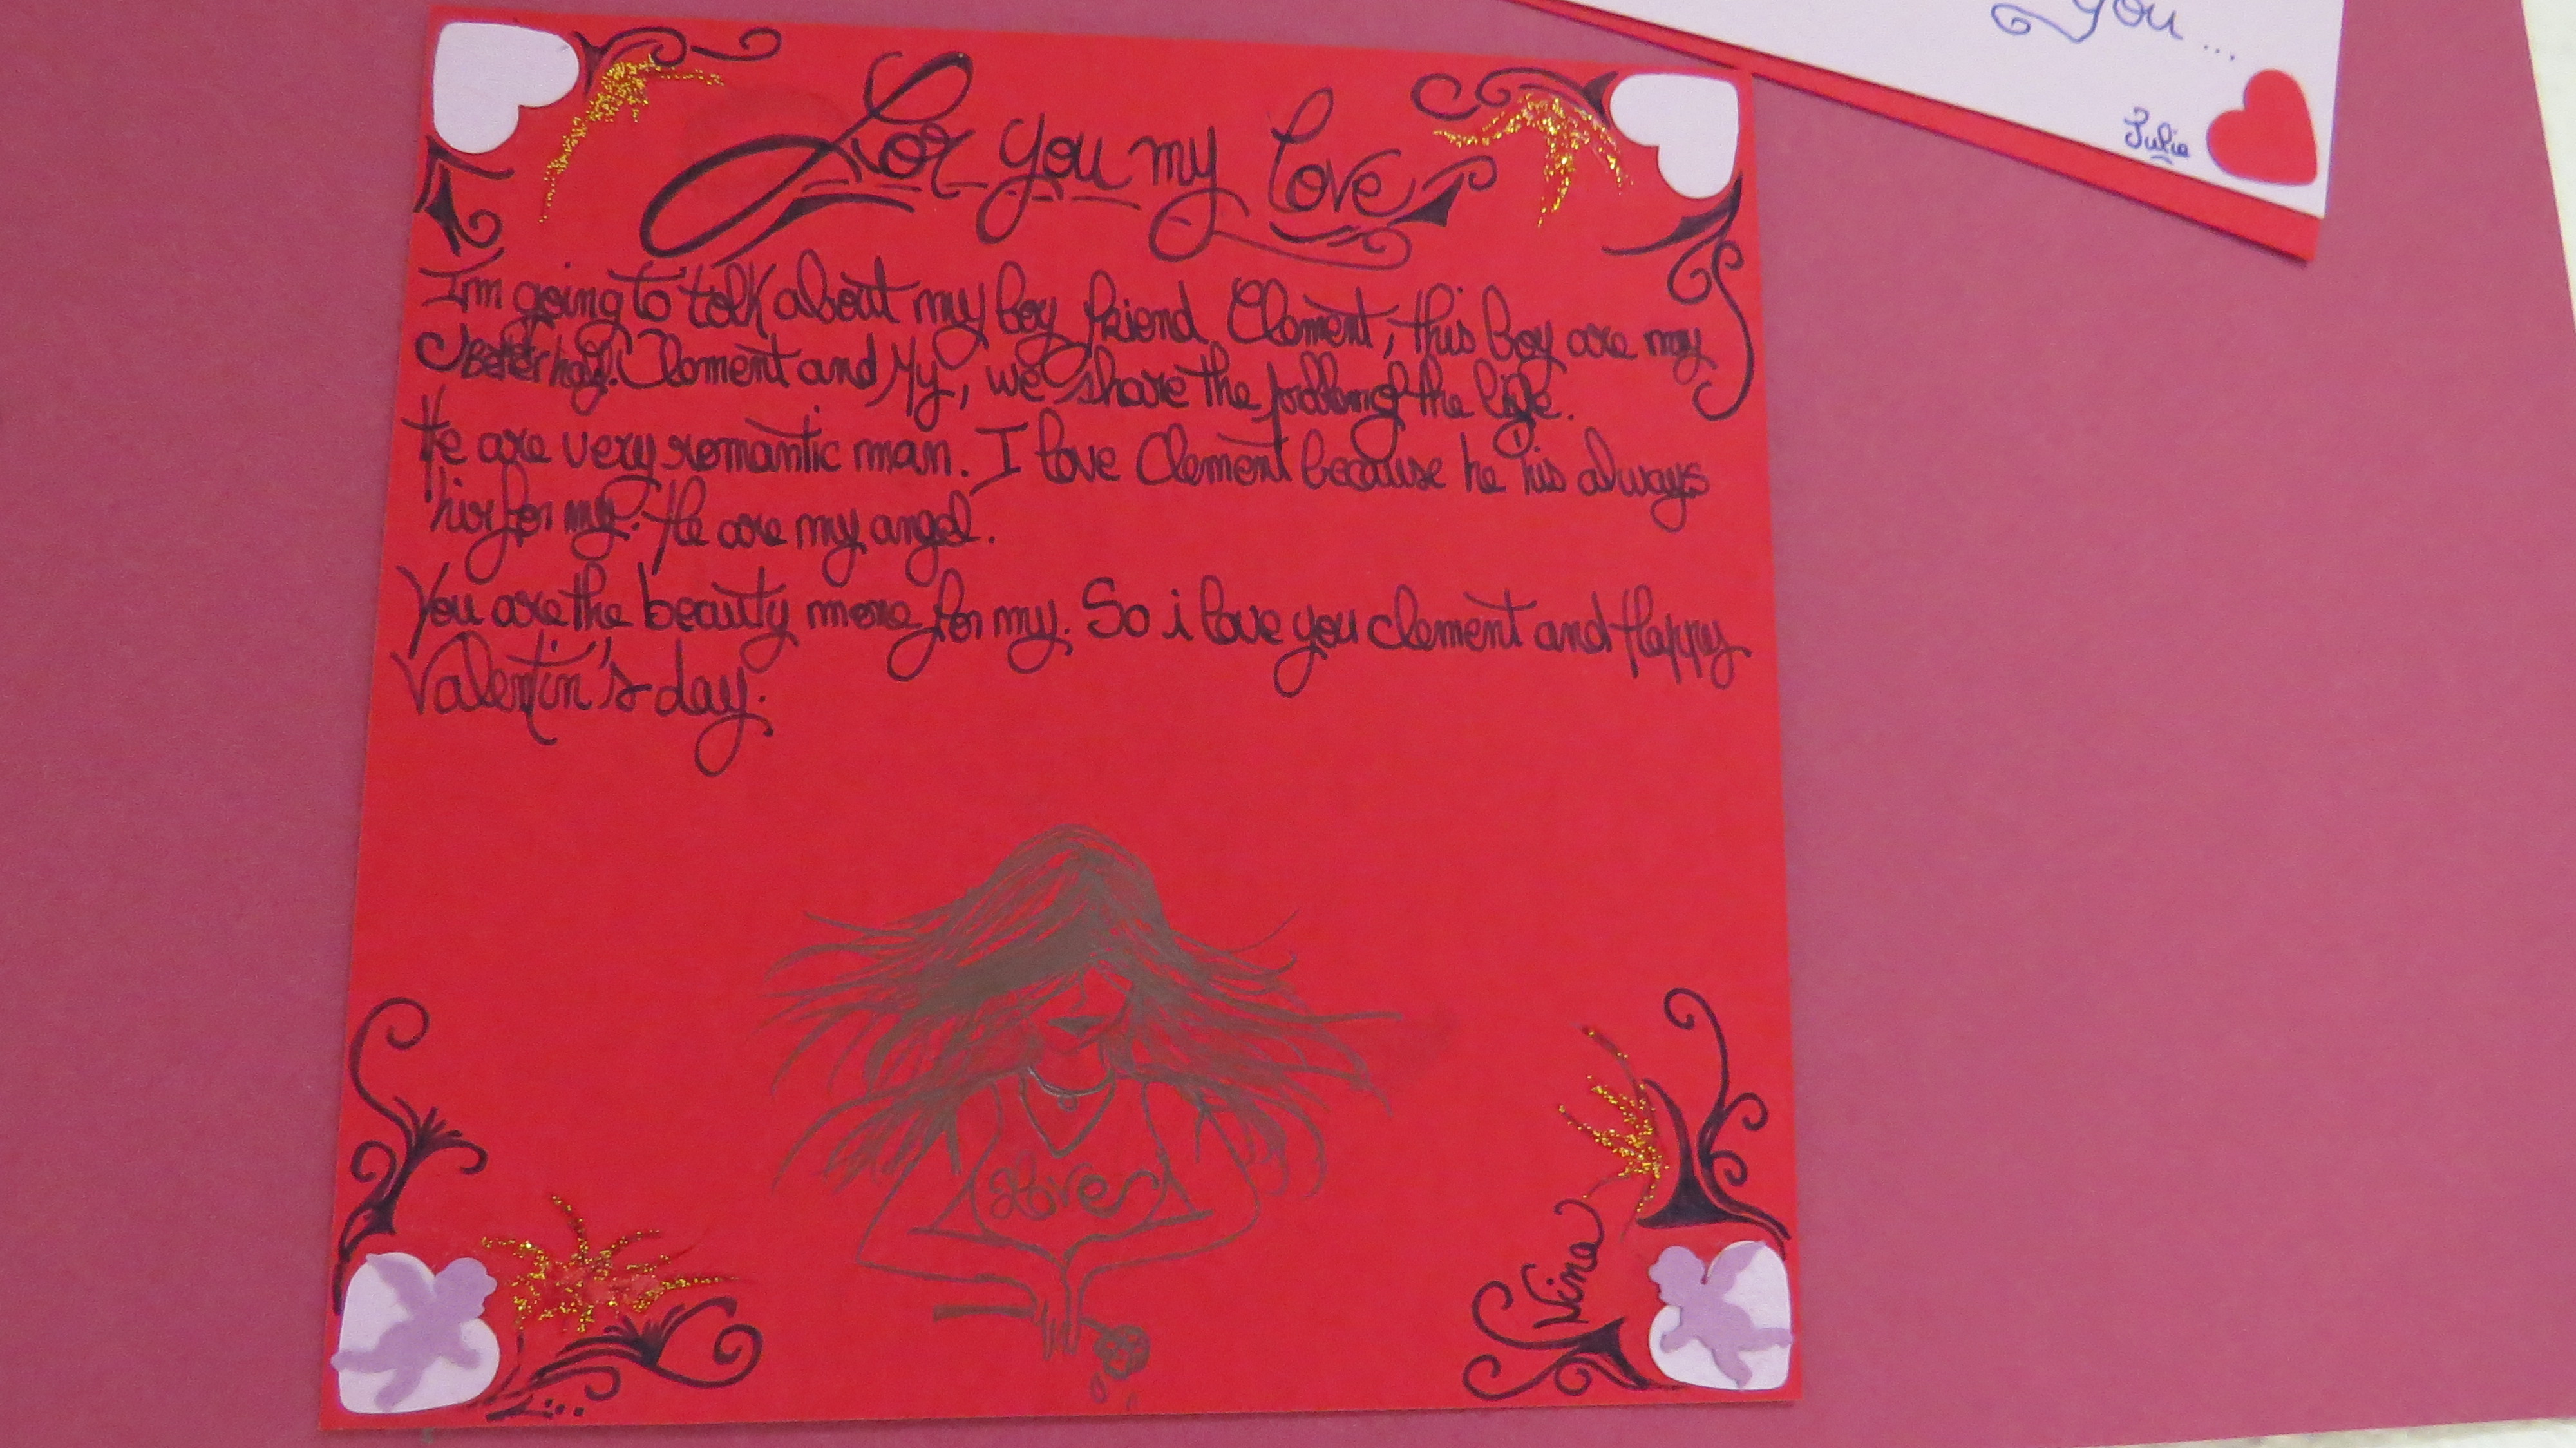 you...
Julie
For you my love
I'm going to talk about my boy friend Clement, this boy are my
Better half. Clement and My, we share the problem of the life.
He are very romantic man. I love Clement because he his always
hir for my. He are my angel.
You are the beauty more for my. So i love you clement and Happy
Valentin's day.
Love
Nina